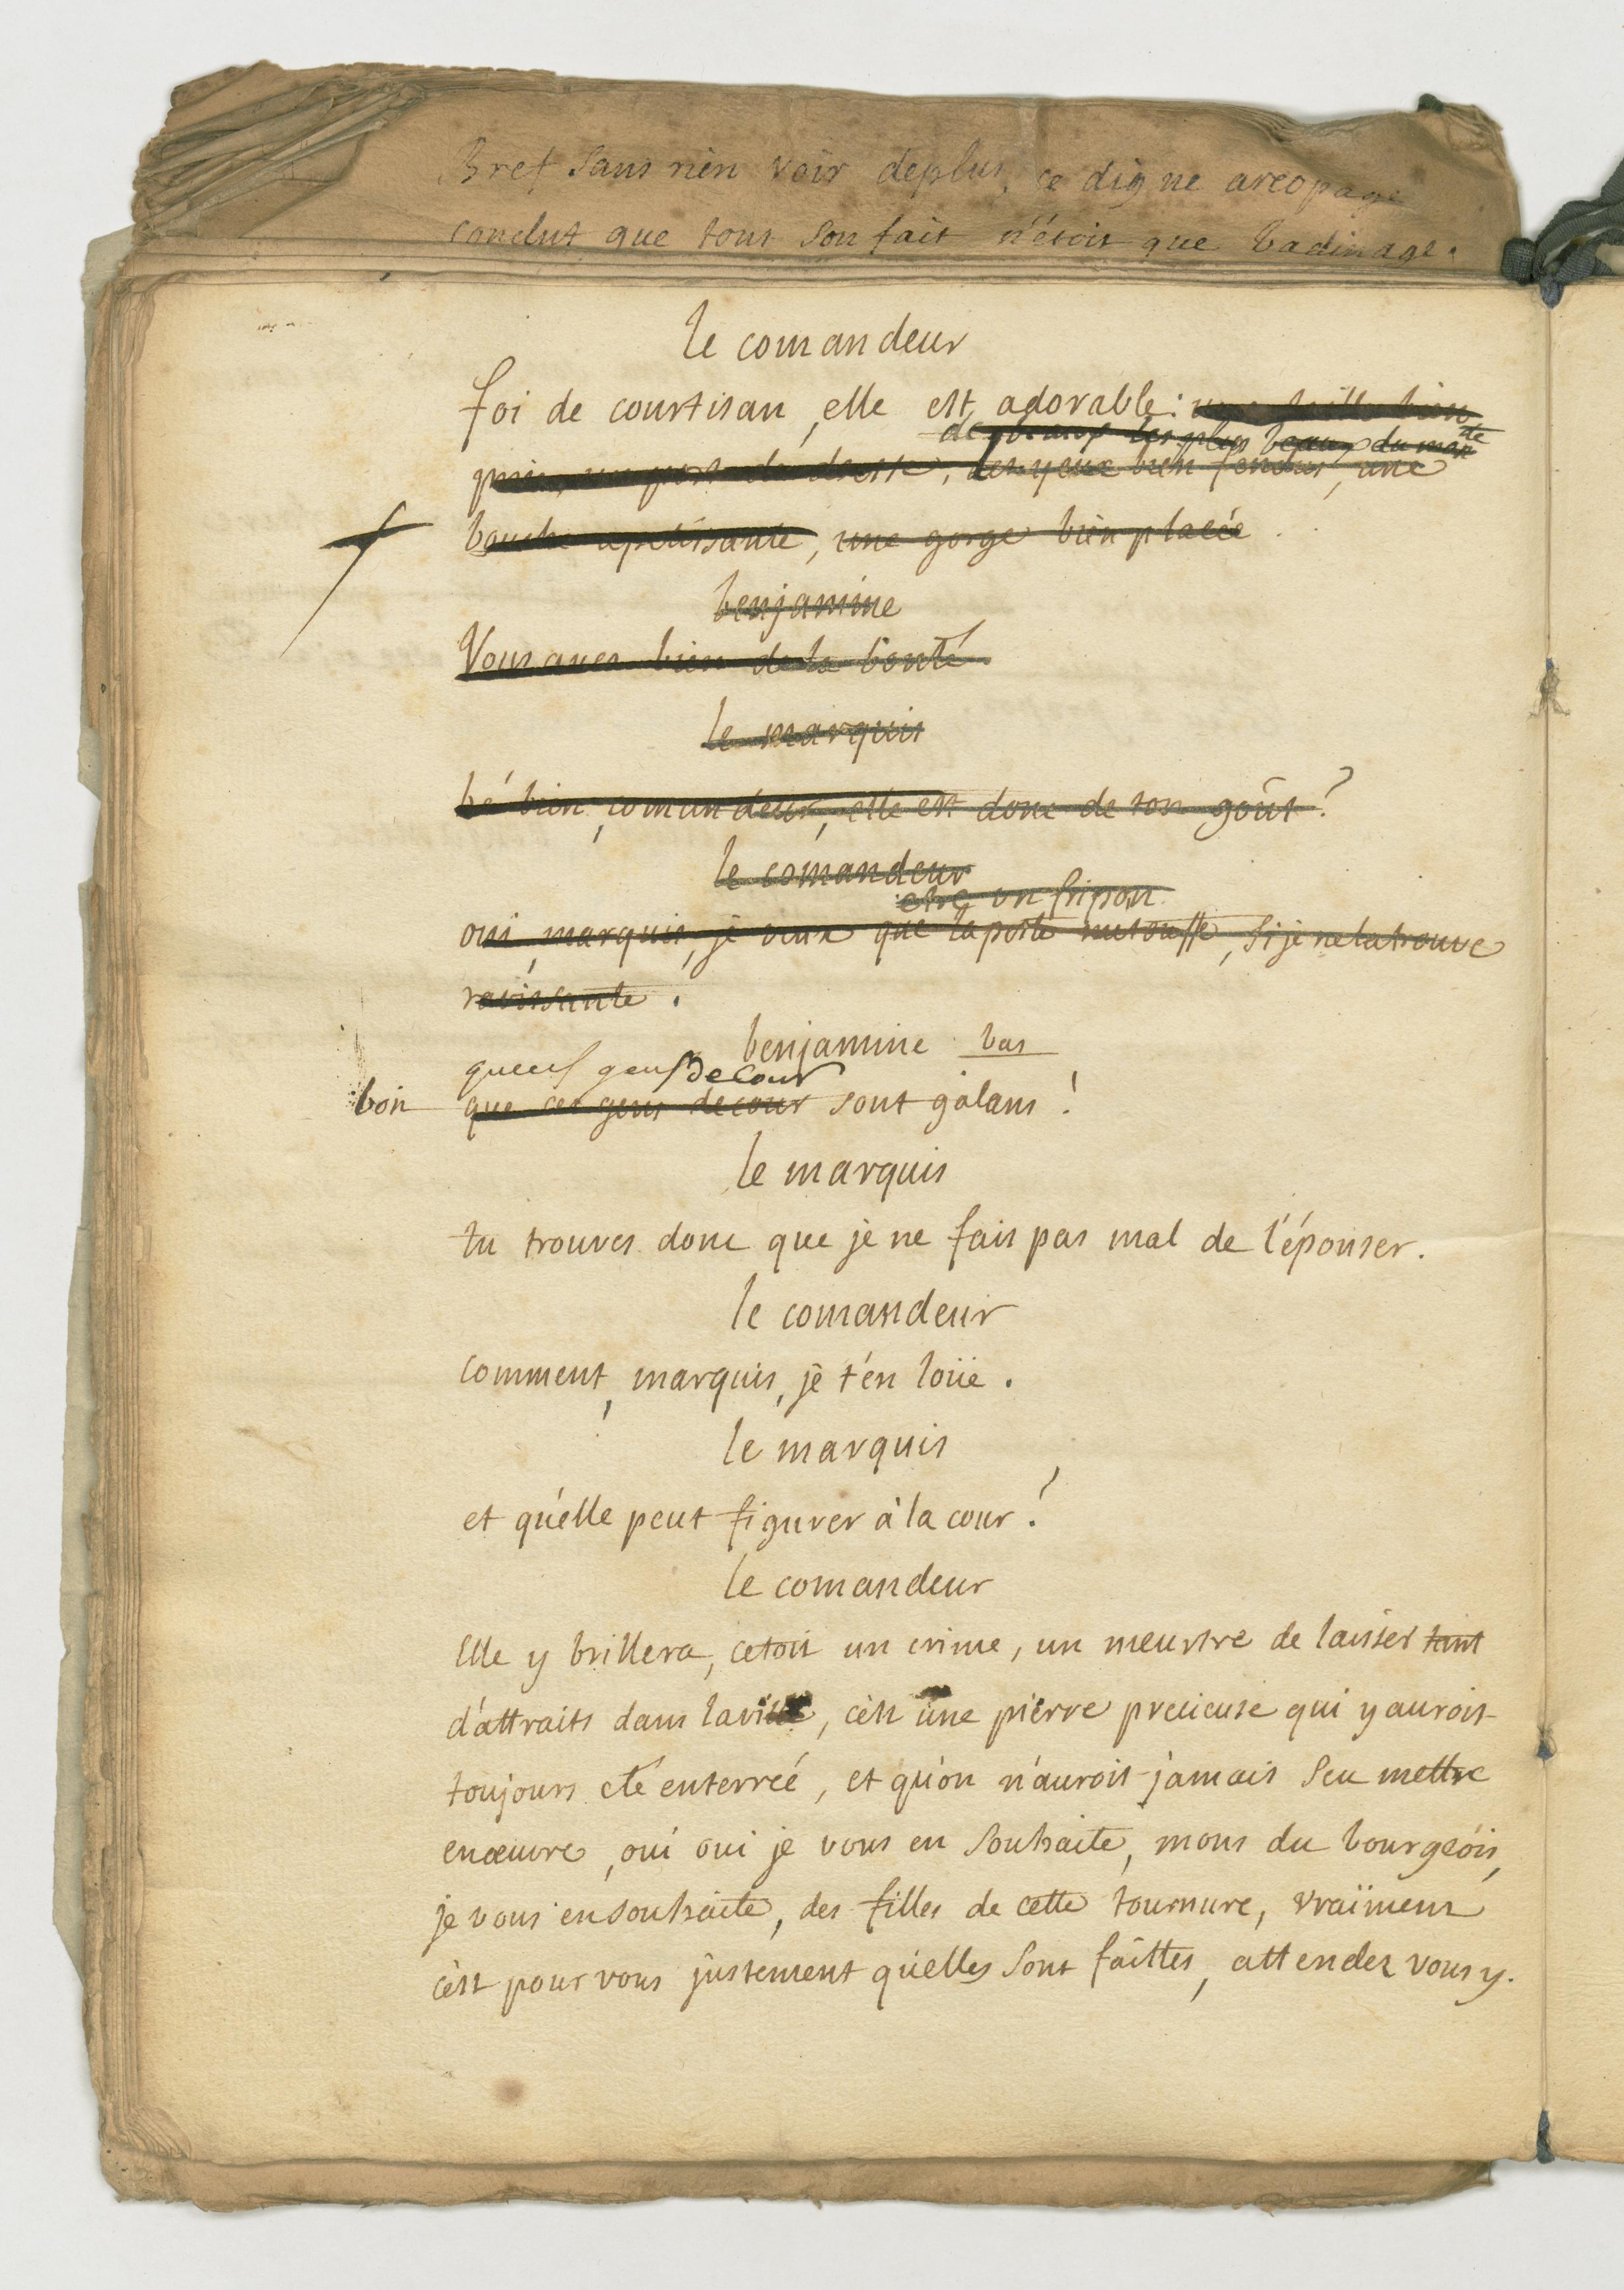 Bref sans rièn voir deplus, ce digne areopage
conclut que tout son fait n'étoit que badinage.
le comandeur
foi de courtisan, elle est adorable: une taille bien
les plus beaux du monde
prise, un port de deesse, des yeux bien fendus, une
bouche apetissante, une gorge bièn placée
benjamine
Vous avez bien de la bonté.
le marquis
hé bien, comandeur, elle est donc de ton goût?
le comandeur
etre un fripon
oui, marquis, je veux que la peste m'etouffe, si je ne la trouve
ravissante.
benjamine bas
que ces gens De Cour
bon que ces gens de cour sont galans!
le marquis
tu trouves donc que je ne fais pas mal de l'épouser.
le comandeur
comment, marquis, je t'en loüe.
le marquis
et qu'elle peut figurer à la cour?
le comandeur
Elle y brillera, cetoit un crime, un meurtre de laisser tant
d'attraits dans la ville, c'est une pierre precieuse qui y auroit
toujours eté enterreé, et qu'on n'auroit jamais sçu mettre
enœuvre, oui oui je vous en souhaite, mons du bourgeois,
je vous ensouhaite, des filles de cette tournure, vraiment
c'est pour vous justement qu'elles sont faittes, attendez vous y.